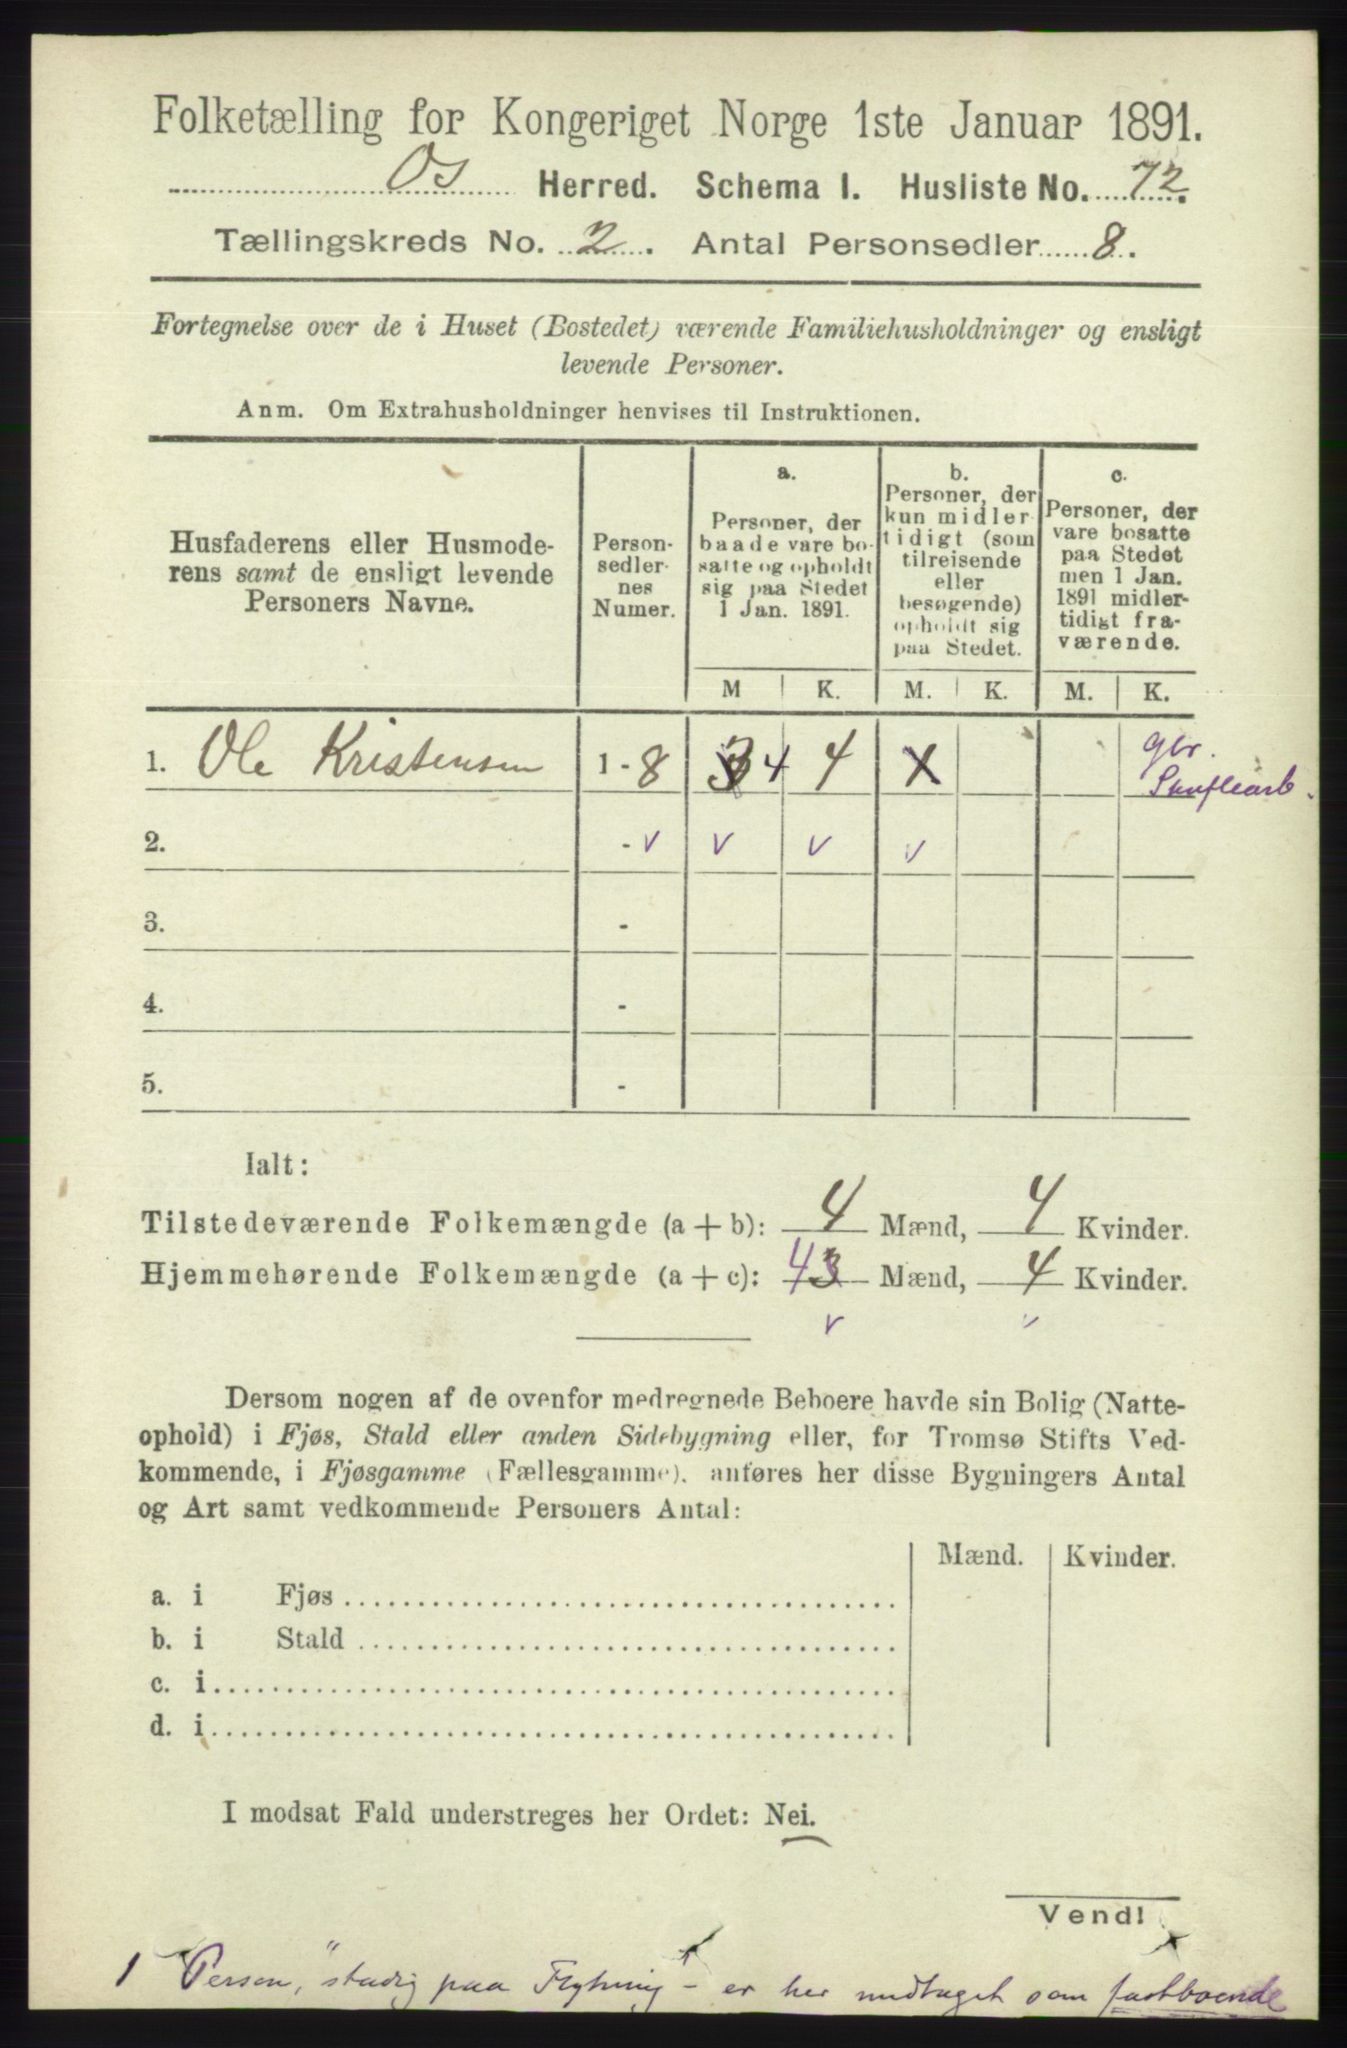 Folketælling for Kongeriget Norge 1ste Januar 1891.
Os Herred. Schema I. Husliste No. 72.
Tællingskreds No. 2. Antal Personsedler 8.
Fortegnelse over de i Huset (Bostedet) værende Familiehusholdninger og ensligt
levende Personer.
Anm. Om Extrahusholdninger henvises til Instruktionen.
Husfaderens eller Husmode-
rens samt de ensligt levende
Personers Navne.
Person-
sedler-
nes
Numer.
a.
Personer, der
baade vare bo-
satte og opholdt
sig paa Stedet
1 Jan. 1891.
b.
Personer, der
kun midler
tidigt (som
tilreisende
eller
besøgende)
opholdt sig
paa Stedet.
c.
Personer, der
vare bosatte
paa Stedet
men 1 Jan.
1891 midler-
tidigt fra-
værende.
M K. M. K. M. K.
1. Ole Kristensen 1 - 8 3 4 4 1 gbr.
2. - v v v v
3. -
4. -
5. -
Ialt:
Tilstedeværende Folkemængde (a + b): 4 Mænd, 4 Kvinder.
Hjemmehørende Folkemængde (a + c): 4 3 Mænd, 4 Kvinder.
v v
Dersom nogen af de ovenfor medregnede Beboere havde sin Bolig (Natte-
ophold) i Fjøs, Stald eller anden Sidebygning eller, for Tromsø Stifts Ved-
kommende, i Fjøsgamme (Fællesgamme), anføres her disse Bygningers Antal
og Art samt vedkommende Personers Antal:
Mænd. Kvinder.
a. i Fjøs
b. i Stald
c. i
d. i
I modsat Fald understreges her Ordet: Nei.
Vend!
1 Person, "stadig paa Flytning - er her medtaget som fastboende